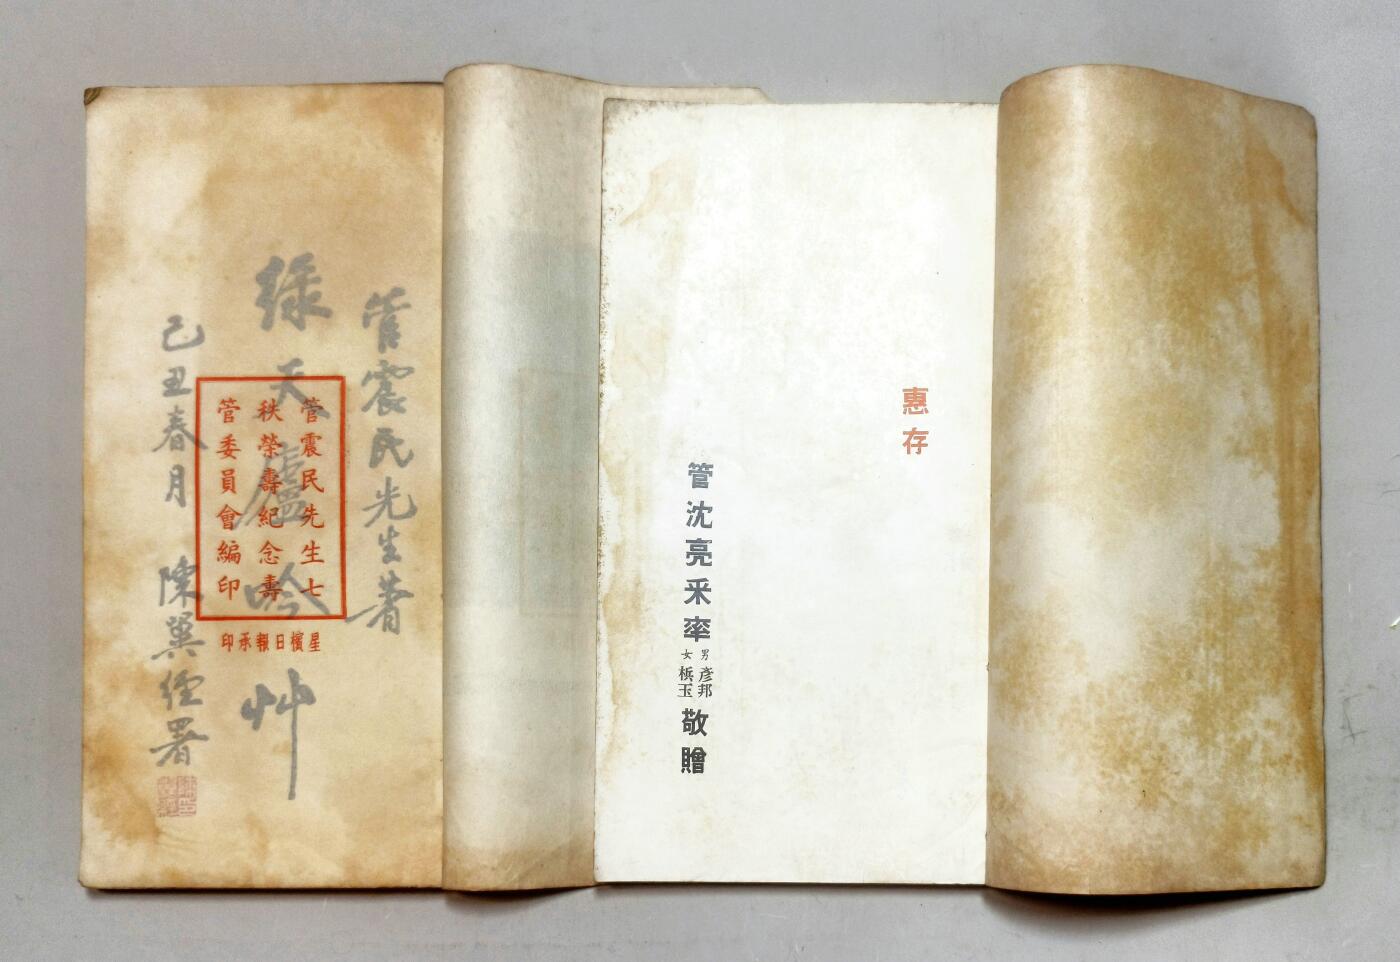 管震民先生著
綠天廬吟艸
己丑春月 陳翼經署
管震民先生七
秩榮壽紀念壽
管委員會編印
星檳日報承印
惠存
管沈亮采率
男彥邦
女梹玉
敬贈